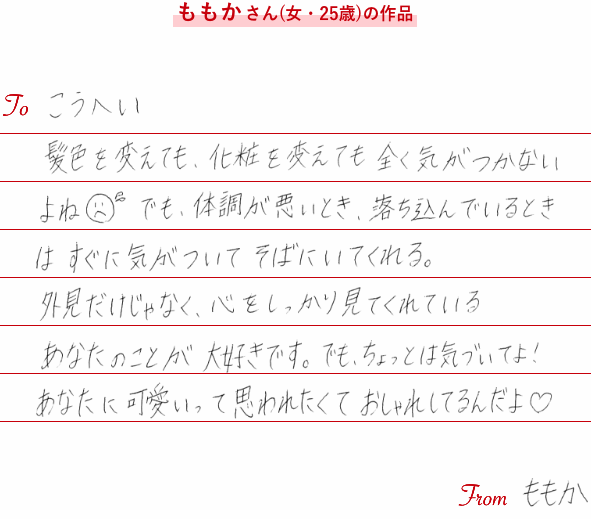 ももかさん(女・25歳)の作品
To こうへい
髪色を変えても、化粧を変えても全く気がつかない
よね☹でも、体調が悪いとき、落ち込んでいるとき
はすぐに気がついてそばにいてくれる。
外見だけじゃなく、心をしっかり見てくれている
あなたのことが大好きです。でも、ちょっとは気づいてよ!
あなたに可愛いって思われたくておしゃれしてるんだよ♡
From ももか